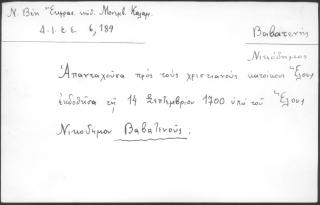 Ν. Βέη Ἔκφρασ. κώδ. Μητρβ. Καλαμ.
Δ.Ι.Ε.Ε. 6,189
Βαβατενῆς
Νικόδημος
Ἀπανταχοῦσα πρὸς τοὺς χριστιανοὺς κατοίκους Ἕλους
ἐκδοθεῖσα τῇ 14 Σεπτεμβρίου 1700 ὑπὸ τοῦ Ἕλους
Νικοδήμου Βαβατινοῦς.